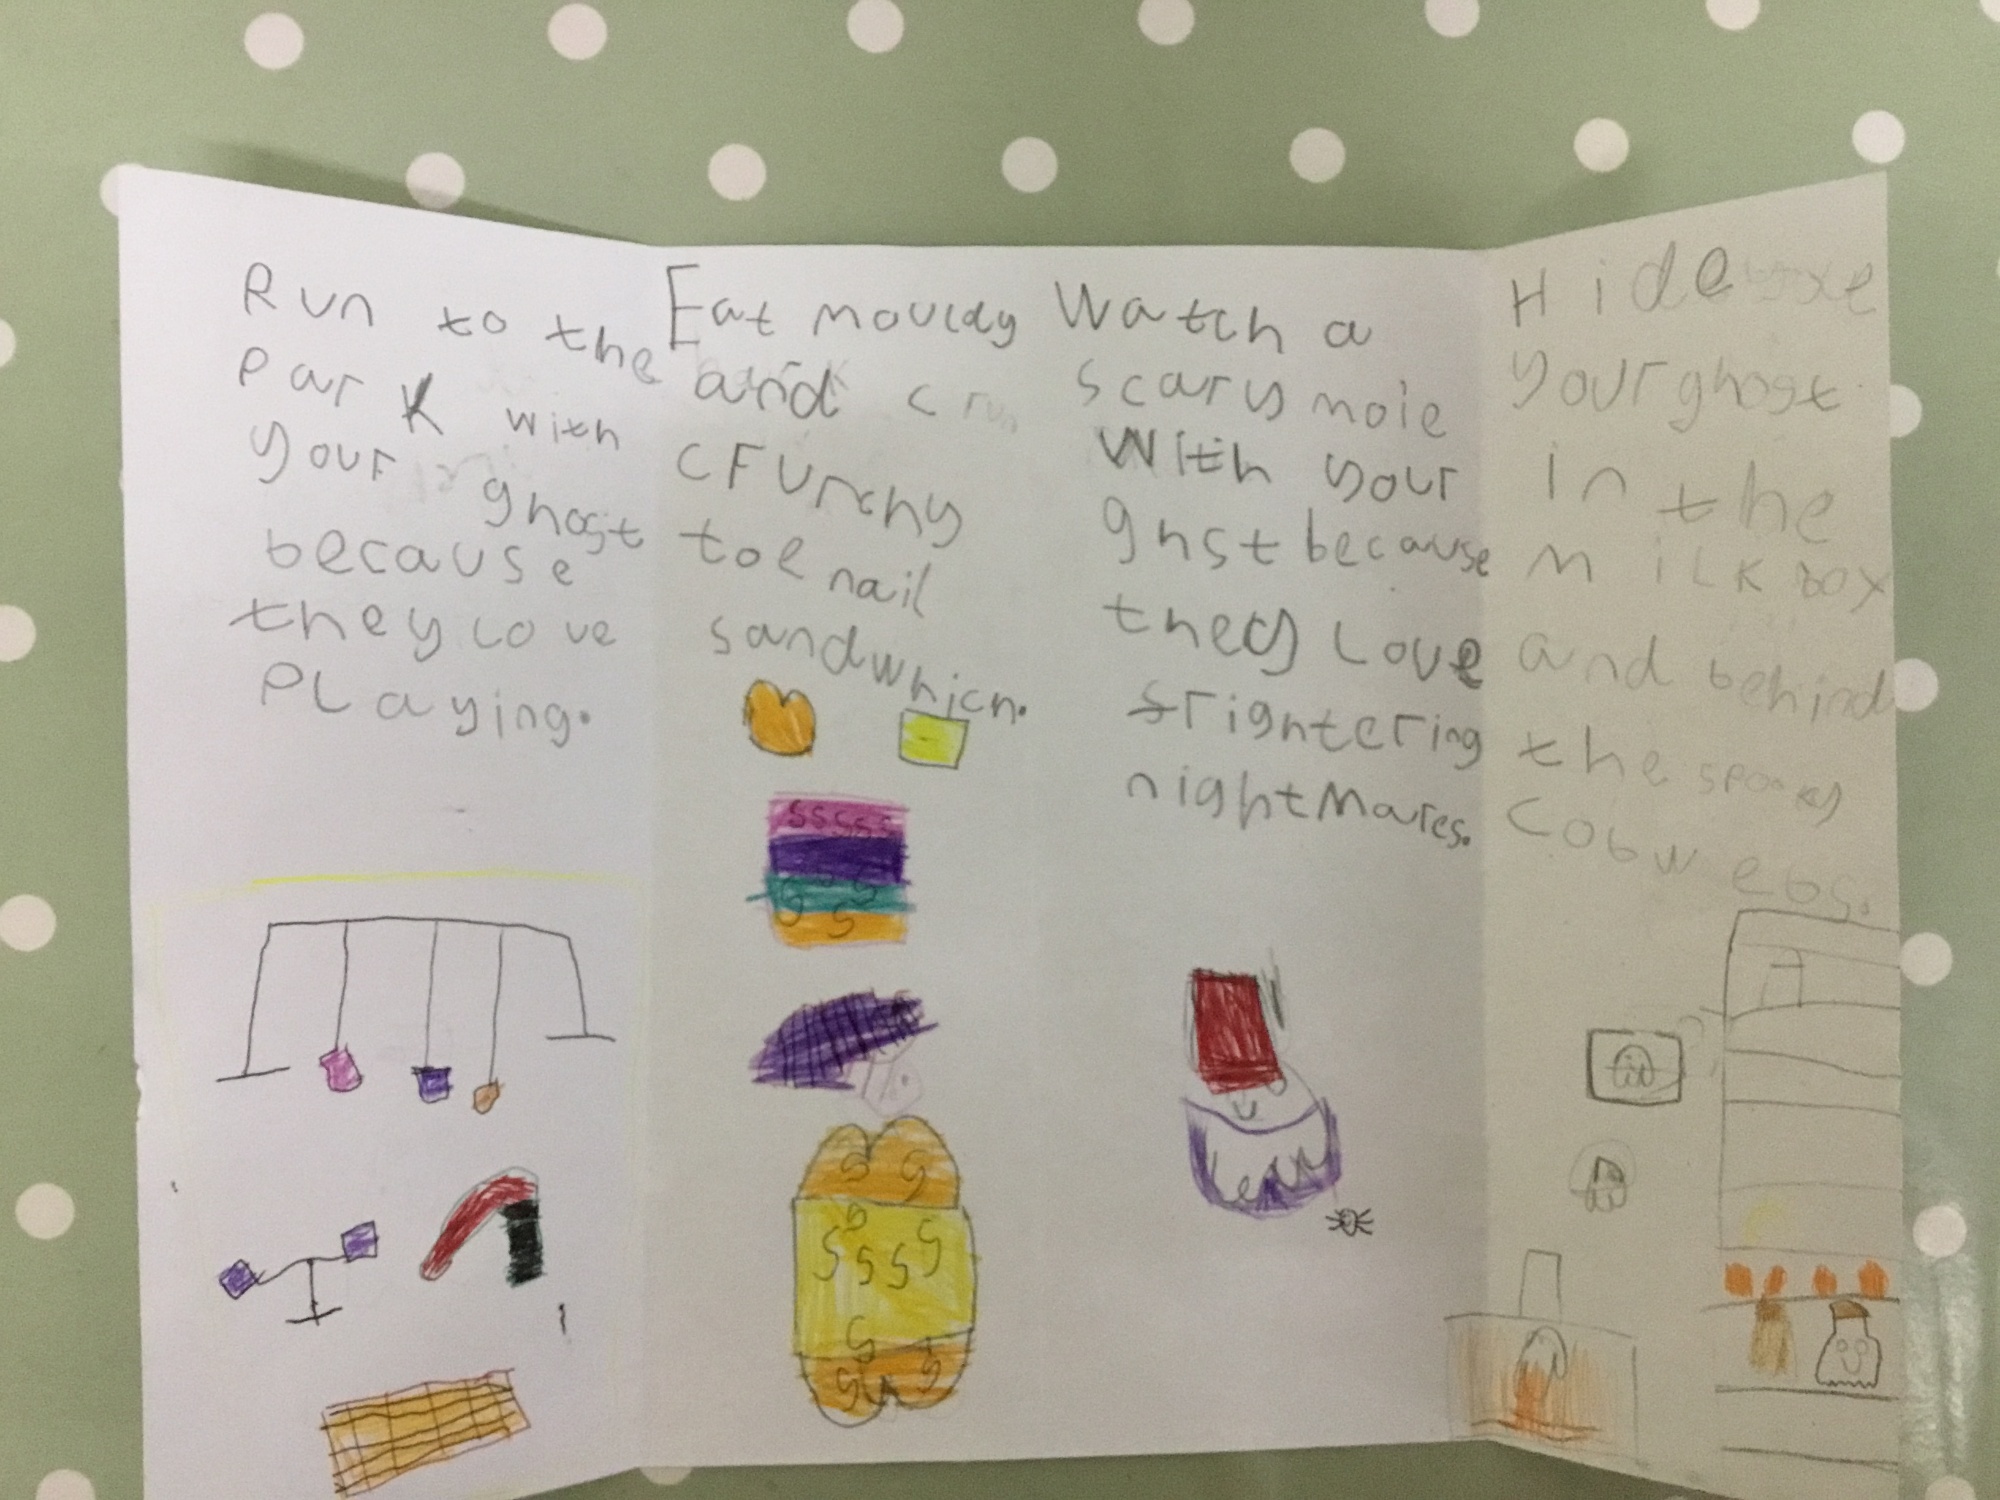 Run to the
park with
your ghost
because
they love
playing.
Eat mouldy
and crun
crunchy
toe nail
sandwhich.
SSSSS
S S
S S
S S
S
SSSS
S
S S
Watch a
scary moie
with your
ghst because
they love
frightering
nightmares.
Hide
your ghost
in the
milk box
and behind
the spooky
cobwebs.